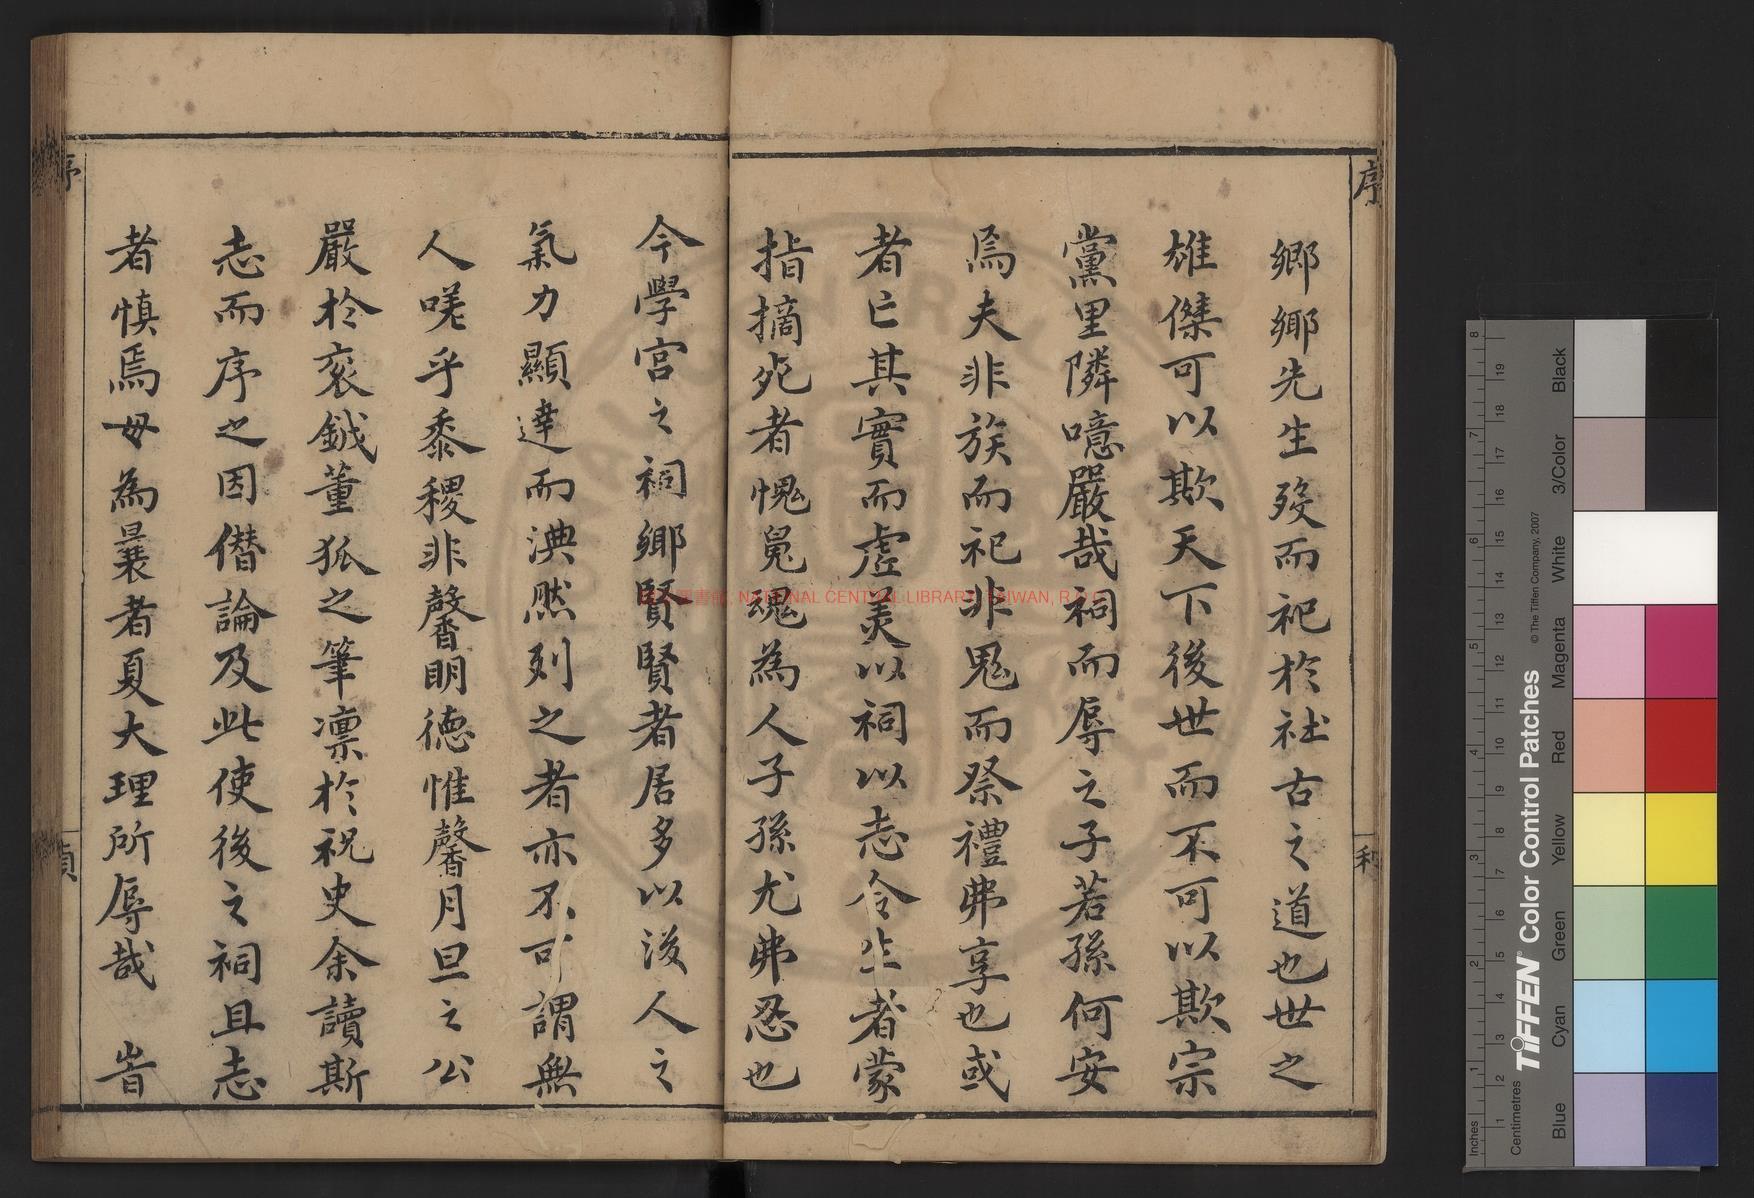 序
利
鄉鄉先生歿而祀於社古之道也世之
雄傑可以欺天下後世而不可以欺宗
黨里隣噫嚴哉祠而辱之子若孫何安
焉夫非族而祀非鬼而祭禮弗享也或
者亡其實而虛美以祠以志令生者蒙
指摘死者愧鬼魂為人子孫尤弗忍也
今學宮之祠鄉賢賢者居多以後人之
氣力顯達而淟然列之者亦不可謂無
人嘆乎黍稷非馨明德惟馨月旦之公
嚴於衮鉞董狐之筆凛於祝史余讀斯
志而序之因僭論及此使後之祠且志
者慎焉毋為曩者夏大理所辱哉 旹
序
貞
圖書館, NATIONAL CENTRAL LIBRARY, TAIWAN, R.O.C
TIFFEN® Color Control Patches
© The Tiffen Company, 2007
Inches
Centimetres
Blue
Cyan
Green
Yellow
Red
Magenta
White
3/Color
Black